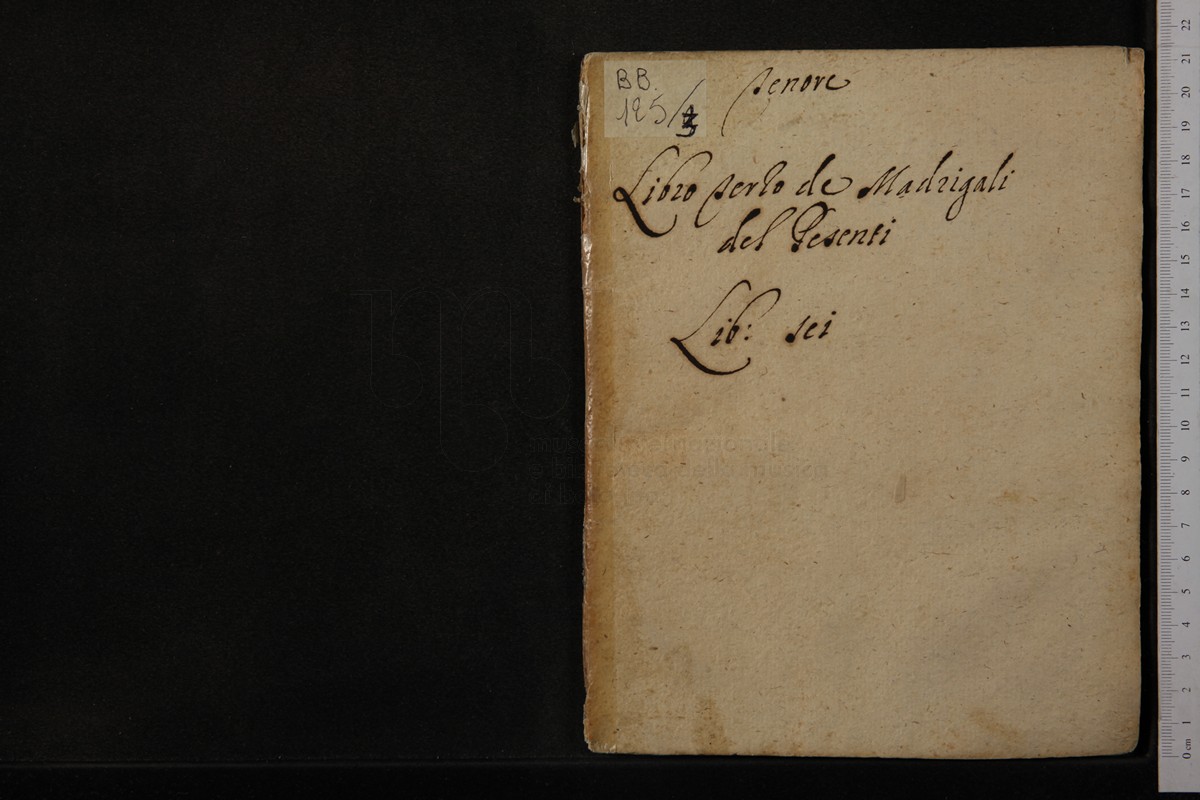 BB.
125/3
Tenore
Libro Terzo de Madrigali
del Pesenti
Lib: sei
museo internazionale
e biblioteca della musica
0 cm 1 2 3 4 5 6 7 8 9 10 11 12 13 14 15 16 17 18 19 20 21 22